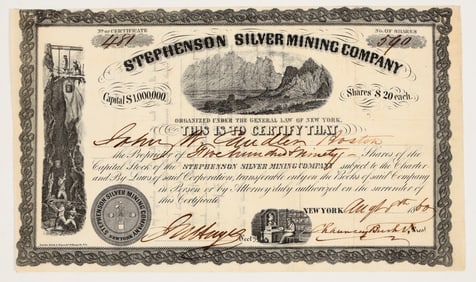 No. OF CERTIFICATE No. OF SHARES
481 590
STEPHENSON SILVER MINING COMPANY
Capital $1,000,000. Shares $20 each.
ORGANIZED UNDER THE GENERAL LAW OF NEW YORK.
THIS IS TO CERTIFY THAT
John W. Boston
is the Proprietor of Five hundred & ninety Shares of the
Capital Stock of the STEPHENSON SILVER MINING COMPANY subject to the Charter
and By Laws of said Corporation, transferable only on the Books of said Company
in Person or by Attorney duly authorized on the surrender of
this Certificate.
STEPHENSON SILVER MINING COMPANY
NEW YORK
NEW YORK, Augt 1860
Secy. Chauncey Bush V. Prest